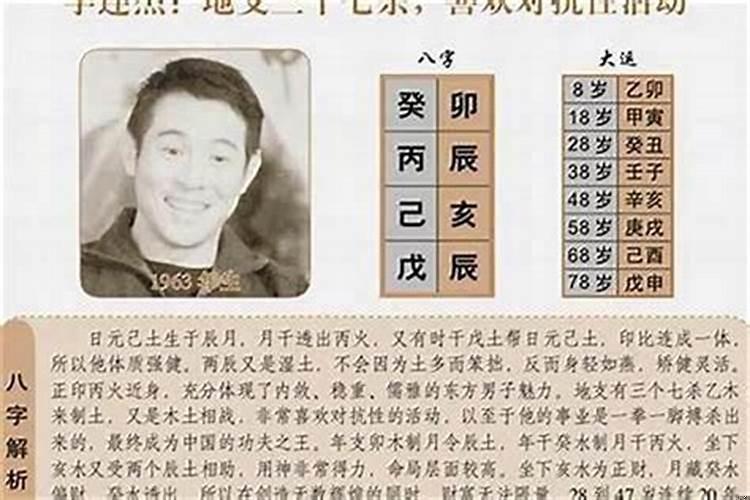 李连杰：地支三个七杀，喜欢对抗性活动
八字
大运
癸 卯
丙 辰
己 亥
戊 辰
8岁 乙卯
18岁 甲寅
28岁 癸丑
38岁 壬子
48岁 辛亥
58岁 庚戌
68岁 己酉
78岁 戊申
1963年生
八字解析
日元己土生于辰月，月干透出丙火，又有时干戊土帮日元己土，印比连成一体，
所以他体质强健。两辰又是湿土，不会因为土多而笨拙，反而身轻如燕，矫健灵活。
正印丙火近身，充分体现了内敛、稳重、儒雅的东方男子魅力。地支有三个七杀乙木
来制土，又是木土相战，非常喜欢对抗性的活动，以至于他的事业是一拳一脚搏杀出
来的，最终成为中国的功夫之王。年支卯木制月令辰土，年干癸水制月干丙火，坐下
亥水又受两个辰土相助，用神非常得力，命局层面较高。坐下亥水为正财，月藏癸水
偏财，癸水透出，所以在创造无数辉煌的同时，财富无法限量。28到47岁连续20年